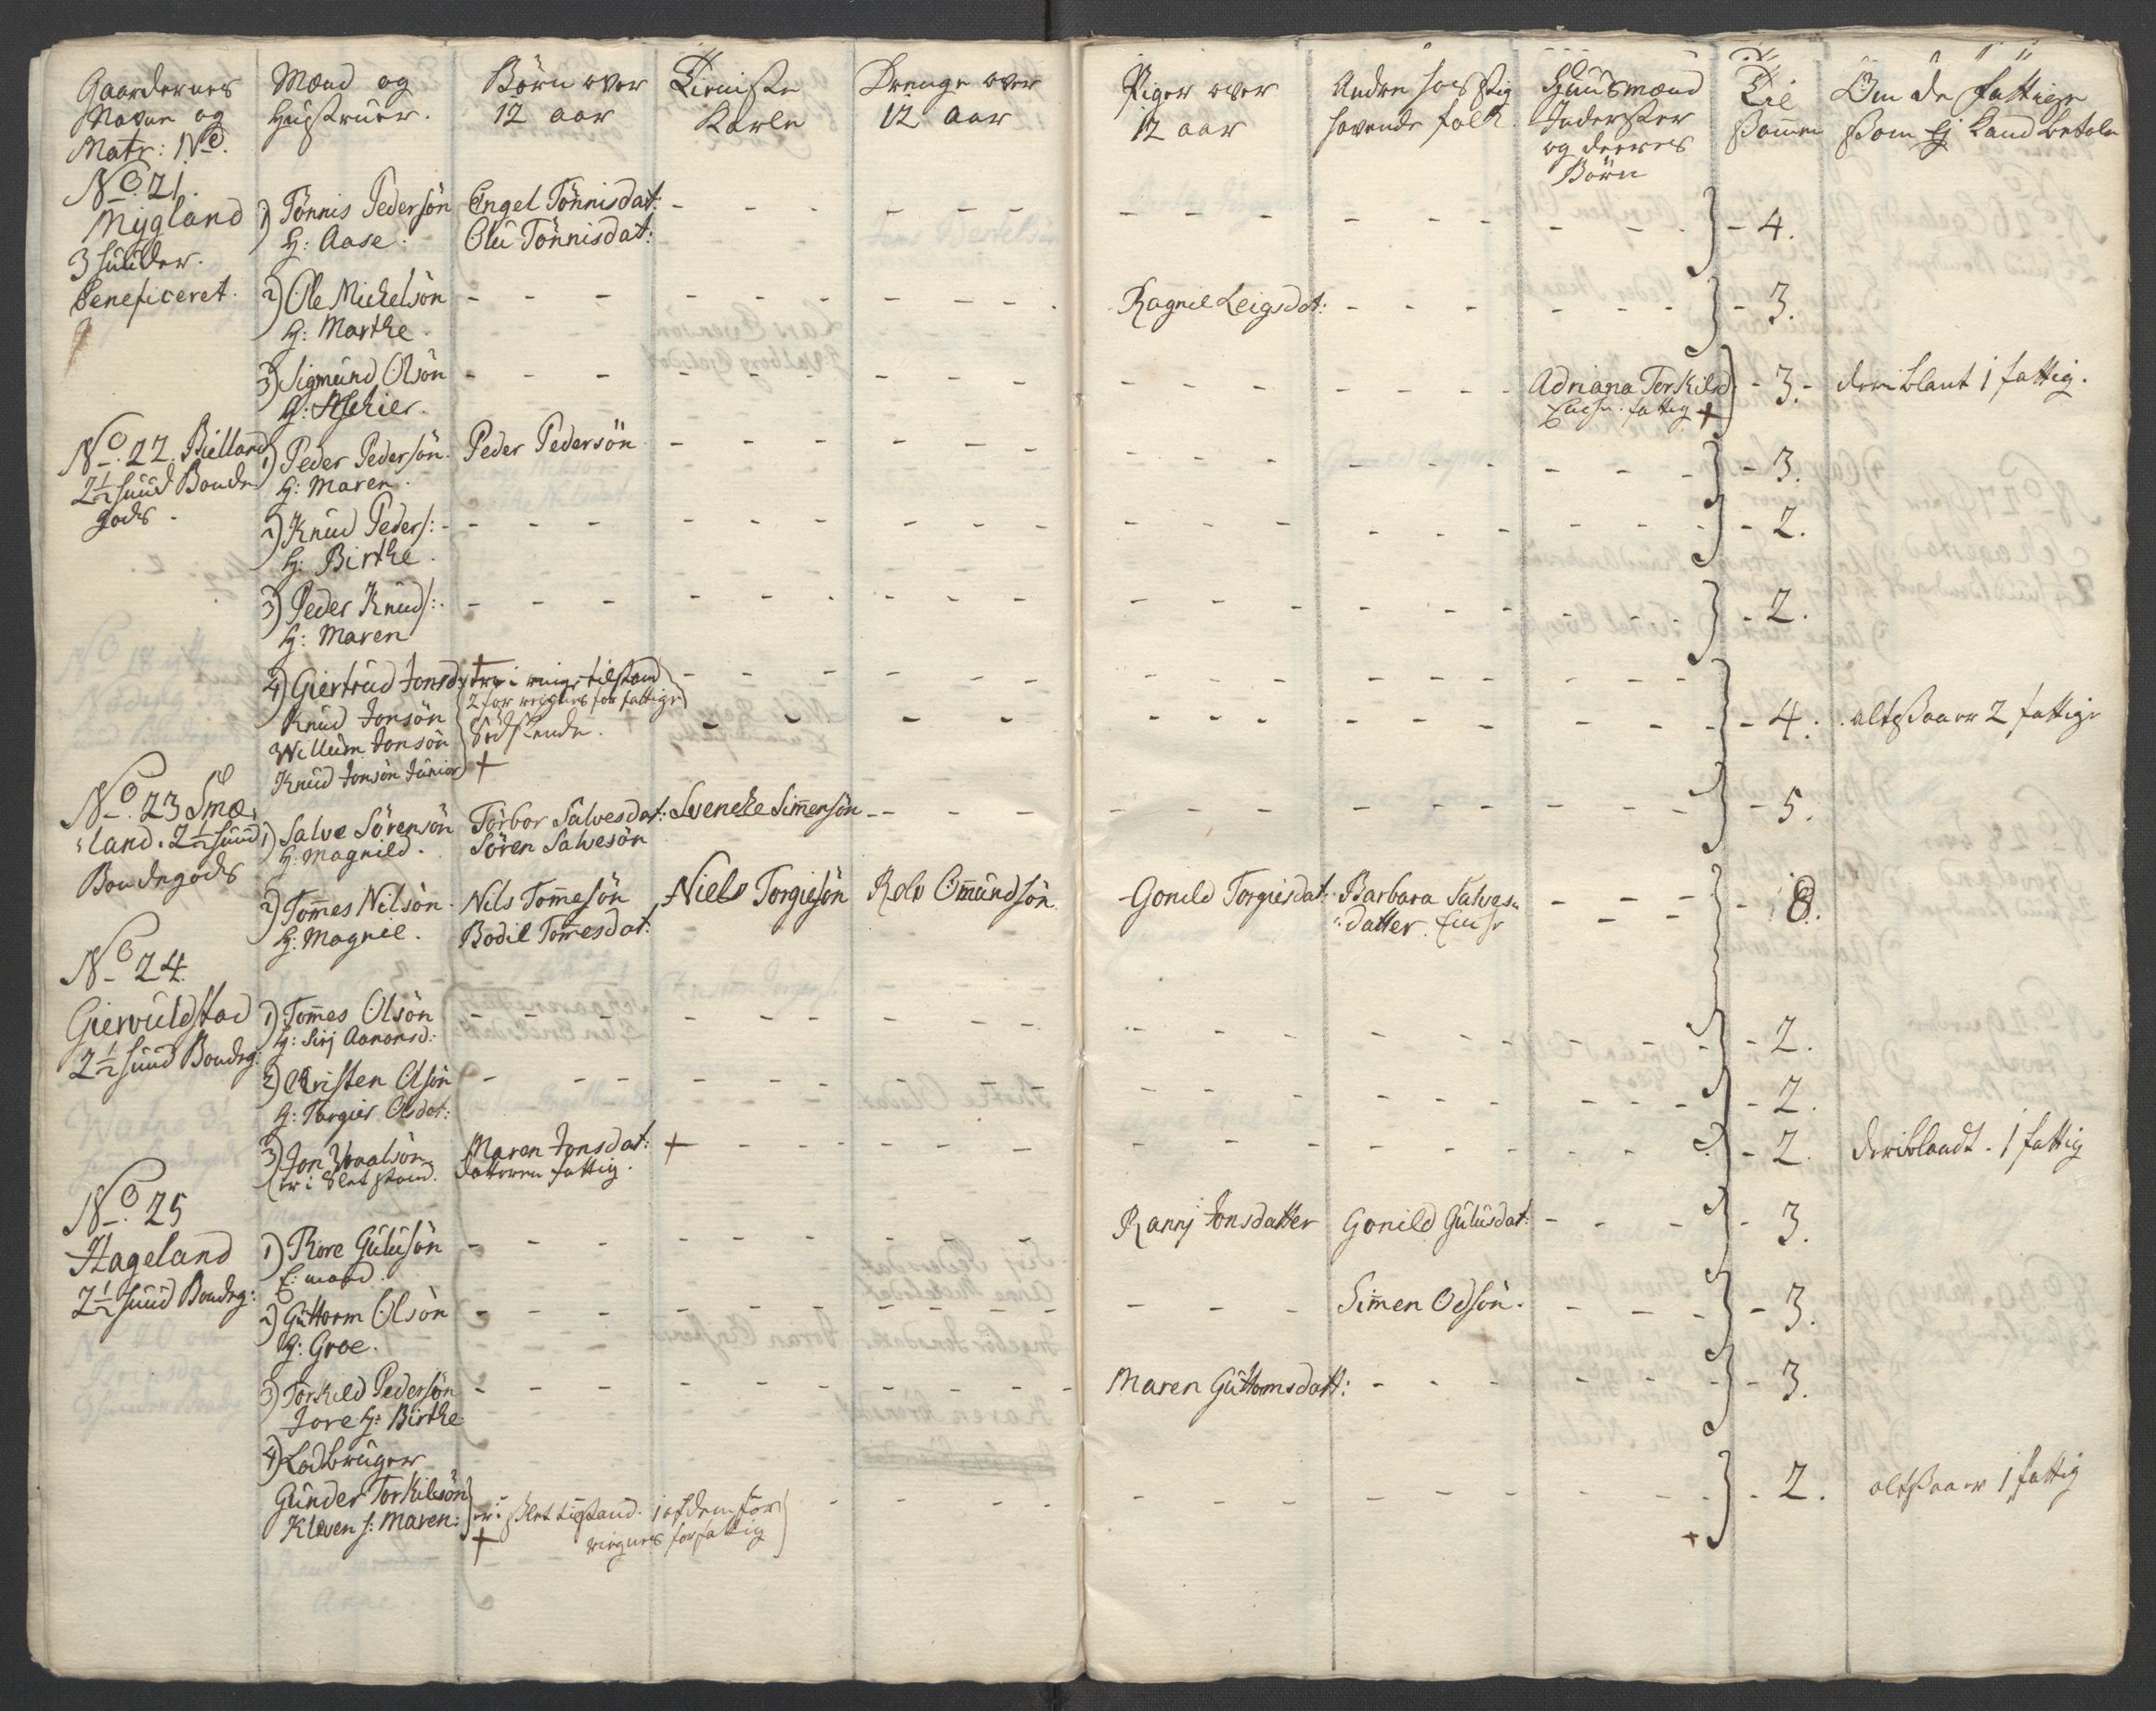 Gaardernes
Navne og
Matr: No.
Mænd og
Hustruer.
Börn over
12 aar
Tieniste
Karle
Drenge over
12 aar
Piger over
12 aar
Andre hos sig
havende folk.
Huusmænd
Inderster
og deeres
Börn
Til
sammen
Om de fattige
som ej kand betale
No. 21.
Mÿgland
3 huuder.
beneficeret.
1) Tönnis Pedersön
H: Aase.
Engel Tönnisdat:
Olü Tönnisdat:
4.
2) Ole Michelsön
H: Marthe.
Ragnil Leigsdat:
3.
3) Sigmund Olsön
H: Aschier.
Adriana Torkilsd
fattig +
3.
deriblant 1 fattig.
No. 22. Bielland
2 1/2 huud Bonde
gods.
1) Peder Pedersön.
H: Maren.
Peder Pedersön
3.
2) Knud Peders:
H: Birthe.
2.
3) Peder Knuds:
H: Maren
2.
4) Giertrud Jonsd:
Knud Jonsön
Willum Jonsön
Knud Jonsön Junior
+
er i ringe tilstand
2 for regnes for fattige
Södskende.
+
4.
altsaa er 2 fattige
No. 23 Smæ,
land. 2 1/2 huud
Bondegods
1) Salve Sörensön
H: Magnild.
Torbor Salvesdat:
Sören Salvesön
Sveneke Simensön
5.
2) Tomes Nilsön.
H: Magnil.
Nils Tomesön
Bodil Tomesdat:
Niels Torgiesön
Rolv Omundsön
Gonild Torgiesdat:
Barbara Salves
datter.
8.
No. 24.
Gieruldstad
2 1/2 huud Bondeg:
1) Tomes Olsön
H: Sirj Aanonsd:
2.
2) Christen Olsön
H: Torgier Olsdat:
2.
3) Jon
er i slet stand.
Maren Jonsdat:
datteren fattig.
+
2.
deriblandt 1 fattig
No. 25
Hageland
2 1/2 huud Bondeg:
1) Tore Gulusön
E: mand.
Rannj Jonsdatter
Gonild Gulusdat:
3.
2) Guttorm Olsön
H: Groe.
Simen Odsön.
3.
3) Torkild Pedersön
Jore H: Birthe
Maren Guttormsdatt:
3.
4) Lodbruger
Gunder Torkilsön
Kleven H: Maren:
er i slet tilstand. 1 af dem for
reignes for fattig
+
+
2.
altsaa er 1 fattig